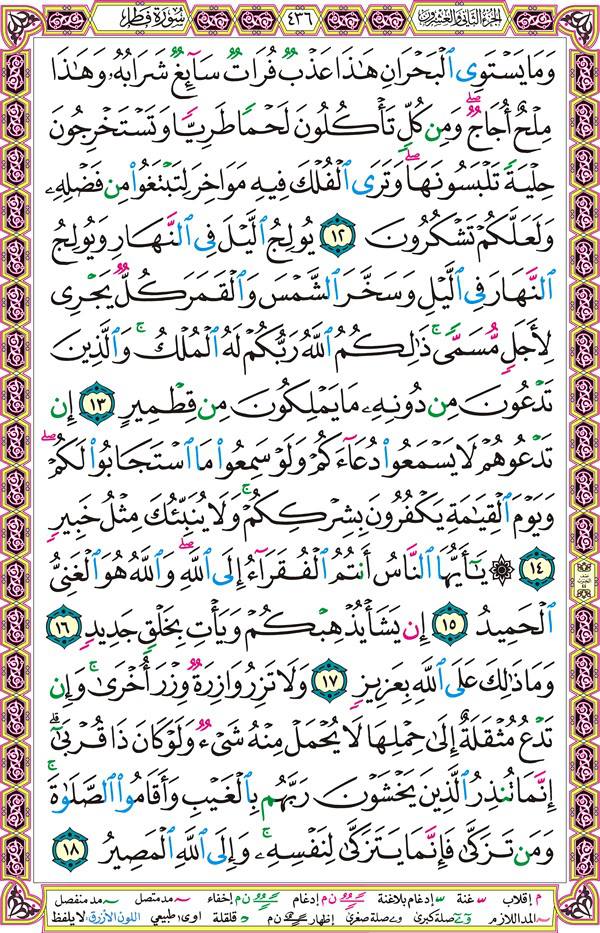 الجزء الثاني والعشرون ٤٣٦ سورة فطر
وَمَا يَسْتَوِى ٱلْبَحْرَانِ هَٰذَا عَذْبٌ فُرَاتٌ سَآئِغٌ شَرَابُهُۥ وَهَٰذَا
مِلْحٌ أُجَاجٌ ۖ وَمِن كُلٍّ تَأْكُلُونَ لَحْمًا طَرِيًّا وَتَسْتَخْرِجُونَ
حِلْيَةً تَلْبَسُونَهَا ۖ وَتَرَى ٱلْفُلْكَ فِيهِ مَوَاخِرَ لِتَبْتَغُوا۟ مِن فَضْلِهِۦ
وَلَعَلَّكُمْ تَشْكُرُونَ ١٢ يُولِجُ ٱلَّيْلَ فِى ٱلنَّهَارِ وَيُولِجُ
ٱلنَّهَارَ فِى ٱلَّيْلِ وَسَخَّرَ ٱلشَّمْسَ وَٱلْقَمَرَ كُلٌّ يَجْرِى
لِأَجَلٍ مُّسَمًّى ۚ ذَٰلِكُمُ ٱللَّهُ رَبُّكُمْ لَهُ ٱلْمُلْكُ ۚ وَٱلَّذِينَ
تَدْعُونَ مِن دُونِهِۦ مَا يَمْلِكُونَ مِن قِطْمِيرٍ ١٣ إِن
تَدْعُوهُمْ لَا يَسْمَعُوا۟ دُعَآءَكُمْ وَلَوْ سَمِعُوا۟ مَا ٱسْتَجَابُوا۟ لَكُمْ ۖ
وَيَوْمَ ٱلْقِيَٰمَةِ يَكْفُرُونَ بِشِرْكِكُمْ ۚ وَلَا يُنَبِّئُكَ مِثْلُ خَبِيرٍ
١٤ ۞ يَٰٓأَيُّهَا ٱلنَّاسُ أَنتُمُ ٱلْفُقَرَآءُ إِلَى ٱللَّهِ ۖ وَٱللَّهُ هُوَ ٱلْغَنِىُّ
ٱلْحَمِيدُ ١٥ إِن يَشَأْ يُذْهِبْكُمْ وَيَأْتِ بِخَلْقٍ جَدِيدٍ ١٦
وَمَا ذَٰلِكَ عَلَى ٱللَّهِ بِعَزِيزٍ ١٧ وَلَا تَزِرُ وَازِرَةٌ وِزْرَ أُخْرَىٰ ۚ وَإِن
تَدْعُ مُثْقَلَةٌ إِلَىٰ حِمْلِهَا لَا يُحْمَلْ مِنْهُ شَىْءٌ وَلَوْ كَانَ ذَا قُرْبَىٰٓ ۗ
إِنَّمَا تُنذِرُ ٱلَّذِينَ يَخْشَوْنَ رَبَّهُم بِٱلْغَيْبِ وَأَقَامُوا۟ ٱلصَّلَوٰةَ ۚ
وَمَن تَزَكَّىٰ فَإِنَّمَا يَتَزَكَّىٰ لِنَفْسِهِۦ ۚ وَإِلَى ٱللَّهِ ٱلْمَصِيرُ ١٨
م إقلاب غنة إدغام بلاغنة ن م إدغام ن م إخفاء مد متصل مد منفصل
المد اللازم صلة كبرى صلة صغرى إظهار ن م قلقلة اوى طبيعي اللون الأزرق: لا يلفظ